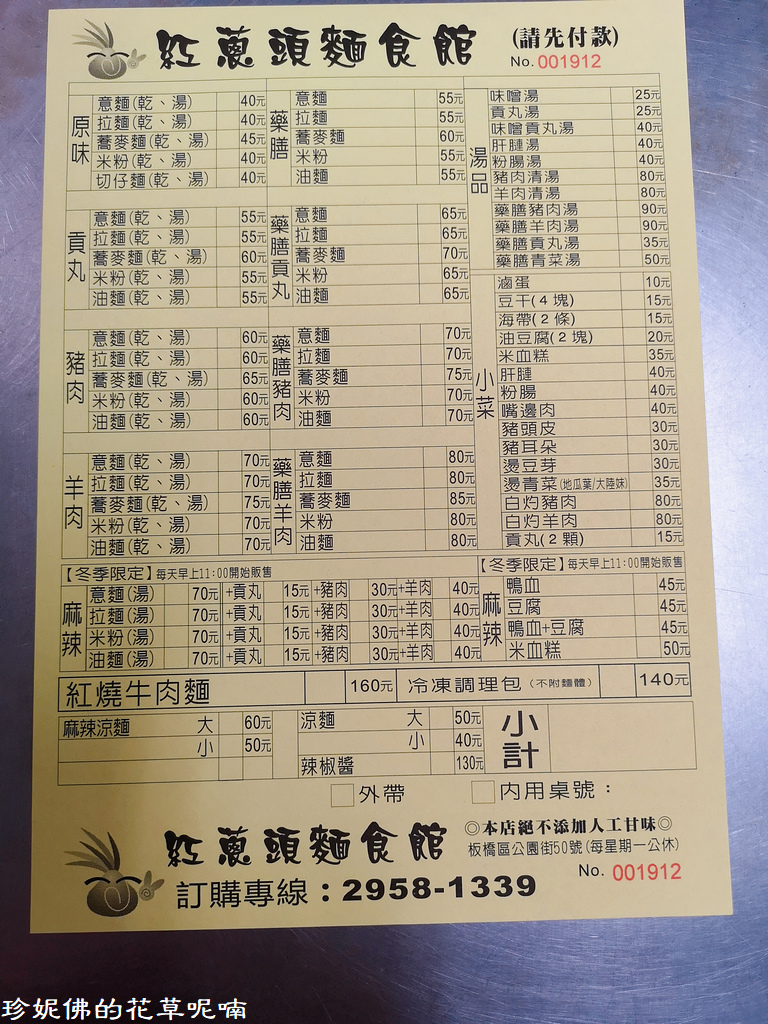 紅蔥頭麵食館 (請先付款)
No. 001912
原味
意麵(乾、湯) 40元
拉麵(乾、湯) 40元
蕎麥麵(乾、湯) 45元
米粉(乾、湯) 40元
切仔麵(乾、湯) 40元
藥膳
意麵 55元
拉麵 55元
蕎麥麵 60元
米粉 55元
油麵 55元
貢丸
意麵(乾、湯) 55元
拉麵(乾、湯) 55元
蕎麥麵(乾、湯) 60元
米粉(乾、湯) 55元
油麵(乾、湯) 55元
藥膳貢丸
意麵 65元
拉麵 65元
蕎麥麵 70元
米粉 65元
油麵 65元
豬肉
意麵(乾、湯) 60元
拉麵(乾、湯) 60元
蕎麥麵(乾、湯) 65元
米粉(乾、湯) 60元
油麵(乾、湯) 60元
藥膳豬肉
意麵 70元
拉麵 70元
蕎麥麵 75元
米粉 70元
油麵 70元
羊肉
意麵(乾、湯) 70元
拉麵(乾、湯) 70元
蕎麥麵(乾、湯) 75元
米粉(乾、湯) 70元
油麵(乾、湯) 70元
藥膳羊肉
意麵 80元
拉麵 80元
蕎麥麵 85元
米粉 80元
油麵 80元
湯品
味噌湯 25元
貢丸湯 25元
味噌貢丸湯 40元
肝腱湯 40元
粉腸湯 40元
豬肉清湯 80元
羊肉清湯 80元
藥膳豬肉湯 90元
藥膳羊肉湯 90元
藥膳貢丸湯 35元
藥膳青菜湯 50元
小菜
滷蛋 10元
豆干(4塊) 15元
海帶(2條) 15元
油豆腐(2塊) 20元
米血糕 35元
肝腱 40元
粉腸 40元
嘴邊肉 40元
豬頭皮 30元
豬耳朵 30元
燙豆芽 30元
燙青菜(地瓜葉/大陸妹) 35元
白灼豬肉 80元
白灼羊肉 80元
貢丸(2顆) 15元
【冬季限定】每天早上11:00開始販售
麻辣
意麵(湯) 70元 +貢丸 15元 +豬肉 30元 +羊肉 40元
拉麵(湯) 70元 +貢丸 15元 +豬肉 30元 +羊肉 40元
米粉(湯) 70元 +貢丸 15元 +豬肉 30元 +羊肉 40元
油麵(湯) 70元 +貢丸 15元 +豬肉 30元 +羊肉 40元
【冬季限定】每天早上11:00開始販售
麻辣
鴨血 45元
豆腐 45元
鴨血+豆腐 45元
米血糕 50元
紅燒牛肉麵 160元 冷凍調理包(不附麵體) 140元
麻辣涼麵 大 60元
小 50元
涼麵 大 50元
小 40元
辣椒醬 130元
小計
外帶 內用桌號：
紅蔥頭麵食館
訂購專線：2958-1339
◎本店絕不添加人工甘味◎
板橋區公園街50號(每星期一公休)
No. 001912
珍妮佛的花草呢喃